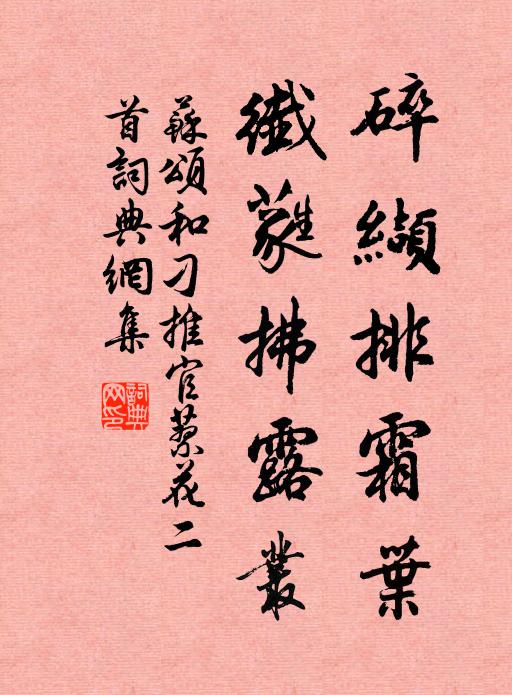 碎纈排霜葉
纖蕤拂露叢
蘇頌和刁推官蓼花二
首詞典網集
詞典
网印